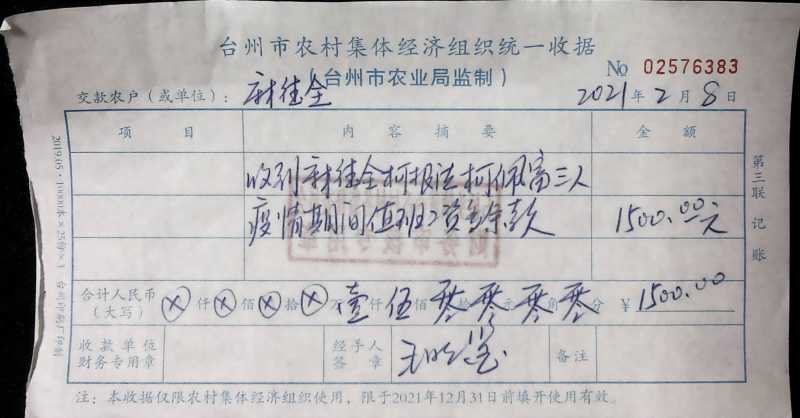 台州市农村集体经济组织统一收据
(台州市农业局监制)
No 02576383
交款农户(或单位): 麻德全
2021年2月8日
项 目 内 容 摘 要 金 额
收到麻德全柯 柯佩富三人
疫情期间值班工资多余款 1500.00元
合计人民币
(大写)
ⓧ仟ⓧ佰ⓧ拾ⓧ万壹仟伍佰零拾零元零角零分 ¥1500.00
收款单位
财务专用章
经手人
签 章
备注
注:本收据仅限农村集体经济组织使用,限于2021年12月31日前填开使用有效。
第三联 记账
2019.05·10000本×25份×3 台州印刷厂印制